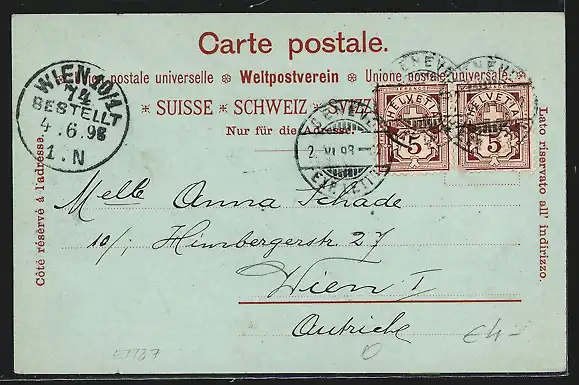 Carte postale.
Union postale universelle ❋ Weltpostverein ❋ Unione postale universale
* SUISSE * SCHWEIZ *
Nur für die Adresse.
WIEN 10/1
74
BESTELLT
4.6.98
1.N
GENÈVE
2.VI.98
HELVETIA
5
HELVETIA
5
Côté réservé à l'adresse.
Lato riservato all' indirizzo.
Melle Anna Schade
10/, Himbergerstr 27
Wien I
Autriche